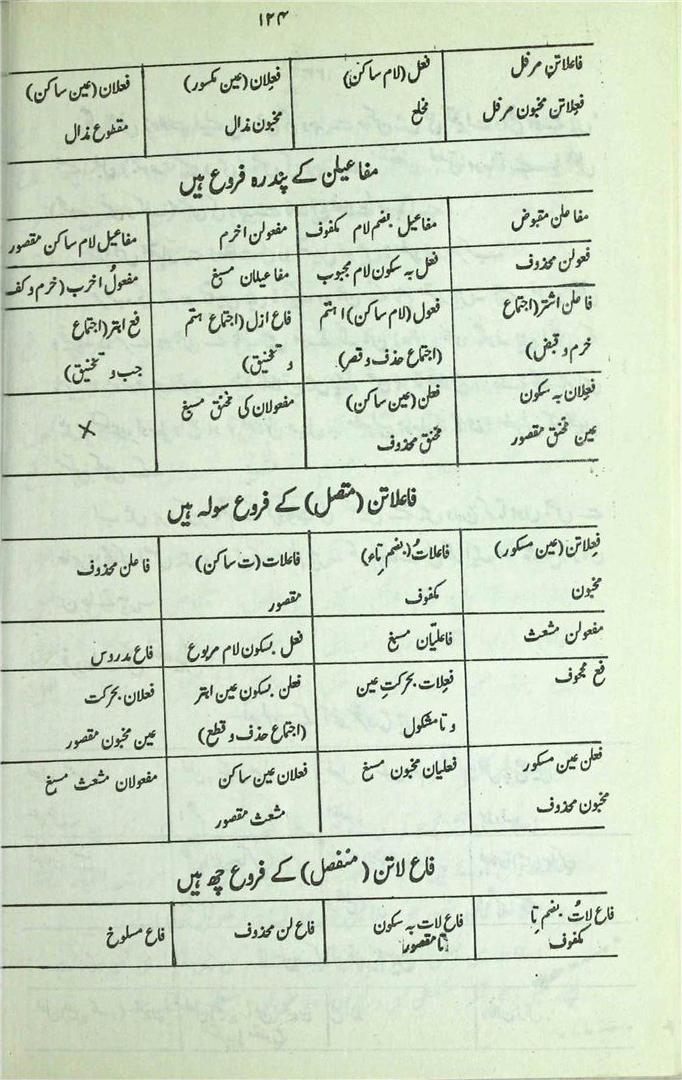 ۱۲۴
فاعلاتن مرفل فعل (لام ساکن) فعِلان (عین مکسور) فعلان (عین ساکن)
فعِلاتن مخبون مرفل مخلع مخبون مذال مقطوع مذال
مفاعیلن کے پندرہ فروع ہیں
مفاعلن مقبوض مفاعیل بضم لام مکفوف مفعولن اخرم مفاعیل لام ساکن مقصور
فعولن محذوف فعل بہ سکون لام مجبوب مفاعیلان مسبغ مفعولُ اخرب (خرم و کف
فاعلن اشتر (اجتماع فعول (لام ساکن) اہتم فاع ازل (اجتماع ہتم فع ابتر (اجتماع
خرم و قبض) (اجتماع حذف و قصر) و تخنیق) جب و تخنیق)
فعلان بہ سکون فعلن (عین ساکن) مفعولان کی مخنق مسبغ ×
عین مخنق مقصور مخنق محذوف
فاعلاتن (متصل) کے فروع سولہ ہیں
فعِلاتن (عین مسکور) فاعلاتُ (بضمِ تاء) فاعلات (ت ساکن) فاعلن محذوف
مخبون مکفوف مقصور
مفعولن مشعث فاعلیّان مسبغ فعل بسکون لام مربوع فاع مدروس
فع مجحوف فعِلات بحرکتِ عین فعلن بسکون عین ابتر فعلان بحرکت
و تا مشکول (اجتماع حذف و قطع) عین مخبون مقصور
فعلن عین مسکور فعلیان مخبون مسبغ فعلان عین ساکن مفعولان مشعث مسبغ
مخبون محذوف مشعث مقصور
فاع لاتن (منفصل) کے فروع چھ ہیں
فاع لاتُ بضمِ تا فاع لات بہ سکون فاع لن محذوف فاع مسلوخ
مکفوف تا مقصور